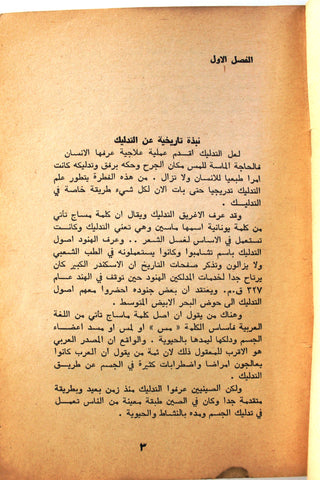 الفصل الاول
نبذة تاريخية عن التدليك
لعل التدليك أقدم عملية علاجية عرفها الانسان
فالحاجة الماسة للمس مكان الجرح وحكه برفق وتدليكه كانت
امرا طبعيا للانسان ولا تزال . من هذه الفطرة يتطور علم
التدليك تدريجيا حتى بات الان لكل شيء طريقة خاصة في
التدليك .
وقد عرف الاغريق التدليك ويقال ان كلمة مساج تأتي
من كلمة يونانية اسمها ماسين وهي تعني التدليك وكانت
تستعمل في الاساس لغسل الشعر .. وعرف الهنود اصول
التدليك باسم تشامبوا وكانوا يستعملونه في الطب الشعبي
ولا يزالون وتذكر صفحات التاريخ ان الاسكندر الكبير كان
يرتاح جدا لخدمات المدلكين الهنود حين توقف في الهند عام
٣٢٧ ق.م. ويعتقد ان بعض جنوده احضروا معهم اصول
التدليك الى حوض البحر الابيض المتوسط .
وهناك من يقول ان كلمة ماساج تأتي من اللغة
العربية فأساس الكلمة « مس » او لمس او مسد اعضاء
الجسم ودلكها ليمدها بالحيوية . والواقع ان المصدر العربي
هو الاقرب للمعقول ذلك لان ثمة من يقول ان العرب كانوا
يعالجون امراضا واضطرابات كثيرة في الجسم عن طريق
التدليك .
ولكن الصينيين عرفوا التدليك منذ زمن بعيد وبطريقة
متقدمة جدا وكان في الصين طبقة معينة من الناس تعمل
في تدليك الجسم ومده بالنشاط والحيوية .
٣